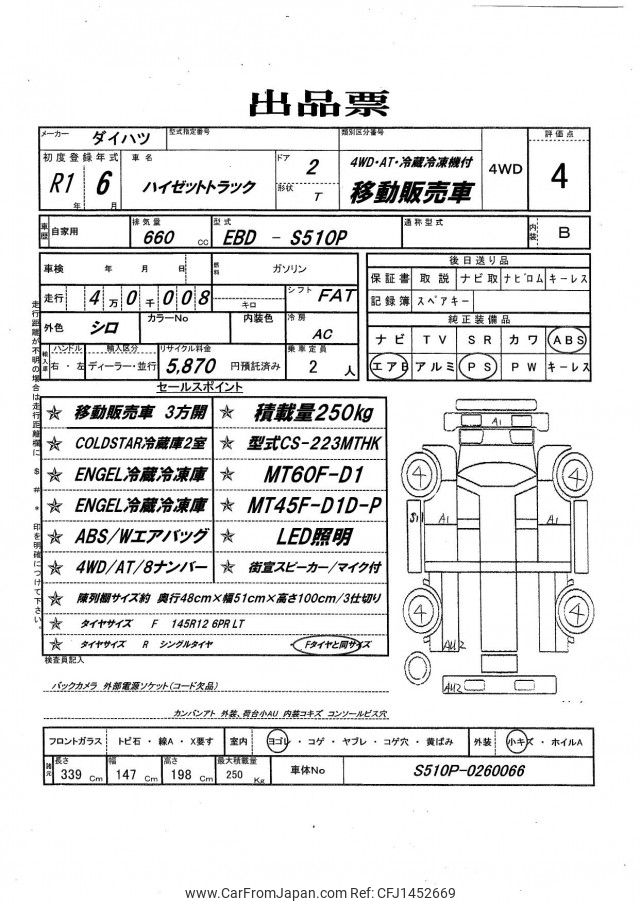 出品票
メーカー ダイハツ 型式指定番号 類別区分番号 4WD 評価点 4
初度登録年式 R1 年 6 月 車名 ハイゼットトラック ドア 2 形状 T 4WD・AT・冷蔵冷凍機付 移動販売車
車歴 自家用 排気量 660 cc 型式 EBD - S510P 通称型式 内装 B
車検 年 月 日 燃料 ガソリン
走行 4万0千008 キロ シフト FAT
外色 シロ カラーNo 内装色 冷房 AC
輸入車 ハンドル 右・左 輸入区分 ディーラー・並行 リサイクル料金 5,870 円預託済み 乗車定員 2 人
後日送り品
保証書 取説 ナビ取 ナビロム キーレス
記録簿 スペアキー
純正装備品
ナビ TV SR カワ ABS
エアB アルミ PS PW キーレス
走行距離が不明の場合は走行距離欄に $ # * 印を明確につけて下さい。
セールスポイント
☆ 移動販売車 3方開 ☆ 積載量250kg
☆ COLDSTAR冷蔵庫2室 ☆ 型式CS-223MTHK
☆ ENGEL冷蔵冷凍庫 ☆ MT60F-D1
☆ ENGEL冷蔵冷凍庫 ☆ MT45F-D1D-P
☆ ABS/Wエアバッグ ☆ LED照明
☆ 4WD/AT/8ナンバー ☆ 街宣スピーカー/マイク付
☆ 陳列棚サイズ約 奥行48cm×幅51cm×高さ100cm/3仕切り
☆ タイヤサイズ F 145R12 6PR LT
☆ タイヤサイズ R シングルタイヤ ・ Fタイヤと同サイズ
A1
4 4
A1 A1
4 4
AU2
AU2
検査員記入
バックカメラ 外部電源ソケット(コード欠品)
カンバンアト 外装、荷台小AU 内装コキズ コンソールビス穴
フロントガラス トビ石・線A・X要す 室内 ヨゴレ・コゲ・ヤブレ・コゲ穴・黄ばみ 外装 小キズ・ホイルA
諸元 長さ 339 Cm 幅 147 Cm 高さ 198 Cm 最大積載量 250 Kg 車体No S510P-0260066
www.CarFromJapan.com Ref: CFJ1452669